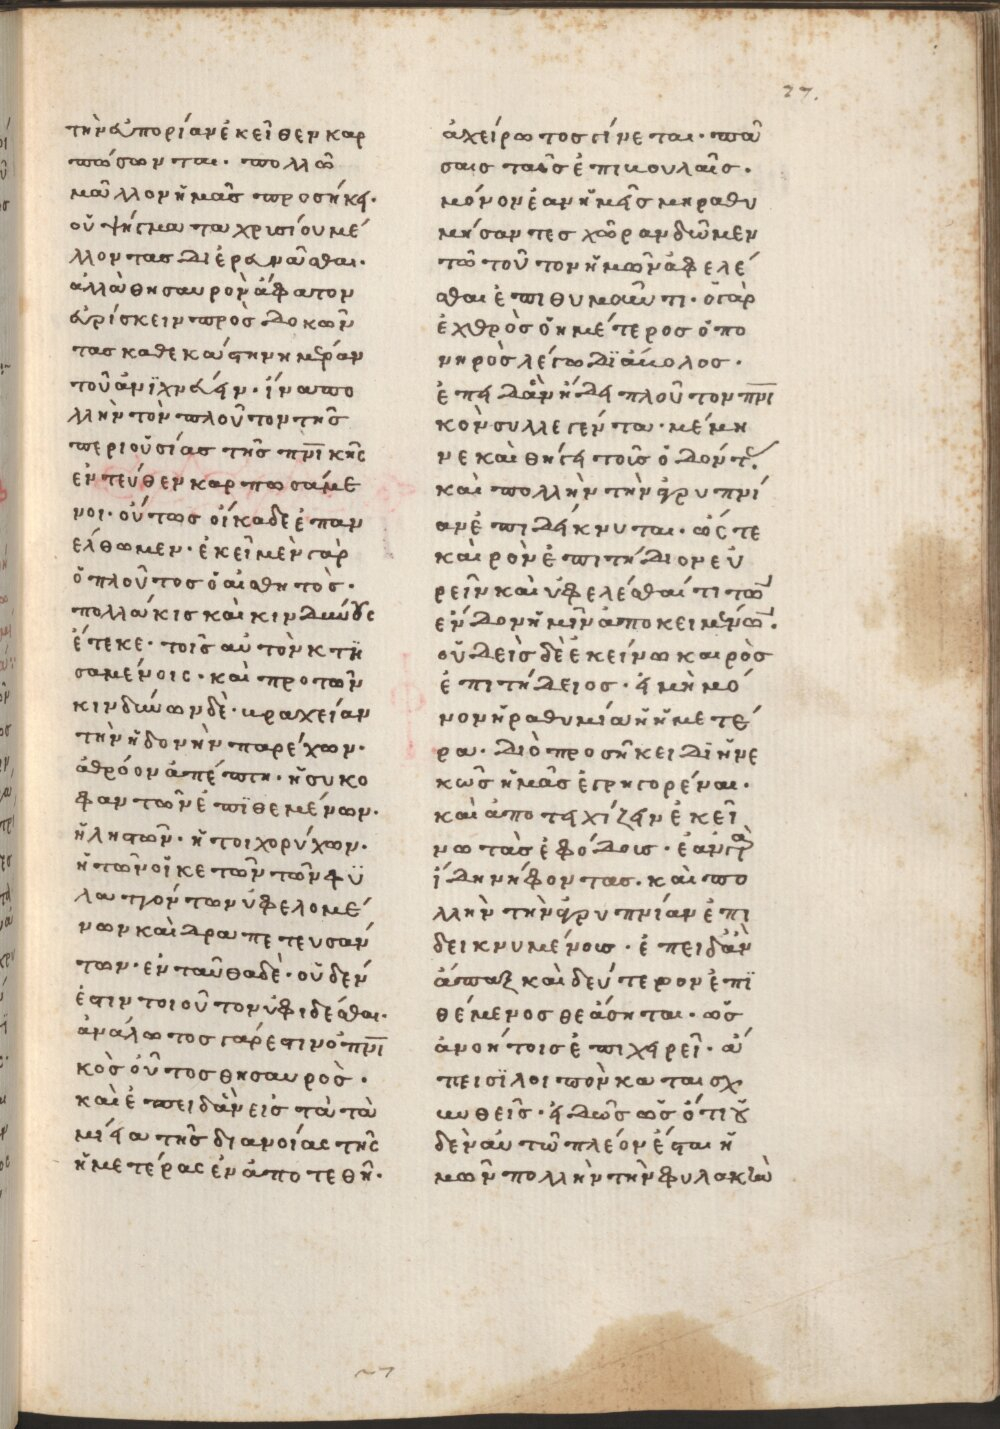 27.
τὴν εὐπορίαν ἐκεῖθεν καρ
πώσωνται· πολλῶ
μᾶλλον ἡμᾶς προσήκει·
οὐ ψήγματα χρισίου μέ
λλοντας διερευνᾶσθαι·
ἀλλὰ θησαυρὸν ἄφατον
εὑρίσκειν προσδοκῶν
τας καθεκάστην ἡμέραν
τοῦ ἀνϊχνεύειν· ἵνα πο
λλὴν τὸν πλοῦτον τῆς
περιοὐσίας τῆς πνικῆς
ἐντεύθεν καρπωσάμε
νοι· οὕτως οἴκαδε ἐπαν
ελθωμεν· ἐκεῖ μὲν γὰρ
ὁ πλοῦτος ὁ αἰσθητὸς·
πολλάκις καὶ κινδύνους
ἔτεκε· τοῖς αὐτὸν κτη
σαμένοις· καὶ προ τῶν
κινδύνων δὲ· βραχεῖαν
τὴν ἡδονὴν παρέχων·
ἀθρόον ἀπέπτη· ἢ συκο
φαντῶν ἐπϊθεμένων·
ἢ ληστῶν· ἢ τοιχορύχων·
ἢ τῶν οἰκετῶν τῶν φϋ
λαττόντων ὑφελομέ
νων καὶ δραπετευσάν
των· ἐνταῦθα δὲ· οὐδέν
ἐστιν τοιοῦτον ὑφιδέσθαι·
ἀνάλωτος γάρ ἐστιν ὁ πνϊ
κὸς οὗτος θησαυρὸς·
καὶ ἐπειδὰν εἰς τὰ τα
μιεῖα τῆς διανοίας τῆς
ἡμετέρας ἐναποτεθῆ·
ἀχείρωτος γίνεται· πᾶ
σαις ταῖς ἐπιβουλαῖς·
μόνον ἐὰν ἡμεῖς μὴ ραθυ
μήσαντες χώραν δῶμεν
τῶ τοῦτον ἡμῶν ἀφελέ
σθαι ἐπιθυμοῦντι· ὁ γὰρ
ἐχθρὸς ὁ ἡμέτερος ὁ πο
νηρὸς λέγω διάβολος·
ἐπειδὰν ἤδη πλοῦτον πνι
κὸν συλλεγέντα· μέμη
νε καὶ θήγει τοὺς ὀδόντας·
καὶ πολλὴν τὴν ἀγρυπνί
αν ἐπιδείκνυται· ὥστε
καιρὸν ἐπιτήδιον εὑ
ρεῖν καὶ ὑφελέσθαι τι τῶν
ἔνδον ἡμῖν ἀποκειμένων·
οὐδεὶς δὲ ἐκείνω καιρὸς
ἐπιτήδειος· εἰ μὴ μό
νον ἡ ραθυμία ἡ ἡμετέ
ρα· διὸ προσῆκει διηνε
κῶς ἡμᾶς ἐγρηγορέναι·
καὶ ἀποτειχίζειν ἐκεί
νω τὰς ἐφόδοις· ἐὰν γὰρ
ἴδη νήφοντας· καὶ πο
λλὴν τὴν ἀγρυπνίαν ἐπι
δεικνυμένους· ἐπειδὰν
ἅπαξ καὶ δεύτερον ἐπϊ
θέμενος θεάσηται· ὡς
ἀνοήτοις ἐπιχειρεῖ· ἄ
πεισϊ λοιπὸν καταισχ
υνθεῖς· εἰδὼς ὡς ὅτι οὐ
δὲν αὐτῶ πλέον ἔσται ἡ
μῶν πολλὴν τὴν φυλακὴν
27